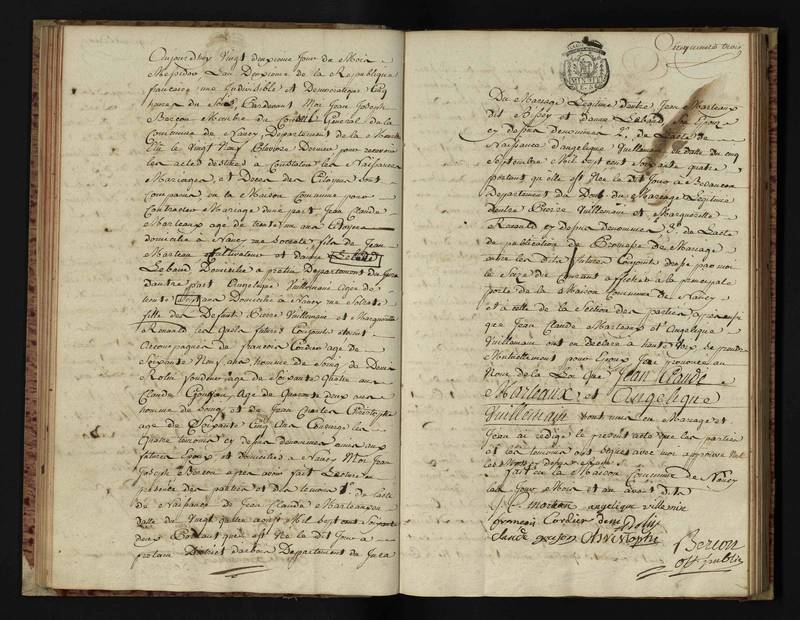 Aujourdhuy Vingt deuxieme Jour du Mois
Messidor, L'an Deuxieme de la Republique
francaise une Indivisible et Democratique Cinq
heures du Soir, Pardevant Moi Jean Joseph
Berson Membre du Conseil Général de la
Commune de Nancy, Departement de la Meurthe
Elu le Vingt Neuf Pluviose Dernier pour recevoir
les actes destinés a Constater les Naissances
Mariages et Deces des Citoyens Sont
Comparus en la Maison Commune pour
Contracter Mariage d'une part Jean Claude
Marteaux age de trente un ans Citoyen
domicilié a Nancy rue Socrate, fils de Jean
Marteau Cultivateur et d'anne
Lebaud Domicilié a pretin Departement du Jura
d'autre part Angelique Vuillemain agée de
trente ans Domiciliée a Nancy rue Socrate
fille des Defunt Pierre Vuillemain et Marguerite
Renauld les quels futurs Conjoints etoient
accompagnés de francois Cordier agé de
Soixante Neuf ans homme de Loy, de Denis
Rolin Vendeur, age de Soixante quatre ans
Claude age de quarante deux ans
homme de Loy et de Jean Charles Christophe
age de Soixante Cinq ans les
quatre temoins cy dessus denommés amis aux
futurs Epoux et domiciliés a Nancy Moi Jean
Joseph Berson apres avoir fait Lecture en
presence des parties et des temoins 1°. de L'acte
de Naissance de Jean Claude Marteaux en
datte du Vingt quatre aoust Mil Sept cent Soixante
deux Portant qu'il est Né le dit Jour a
pretain District d'arbois Departement du Jura
Cinquante trois
Du Mariage Legitime d'entre Jean Marteaux
Dit Bissey et d'anne Lebaud Son Epouse
cy dessus denommés 2°. de L'acte de
Naissance d'angelique Vuillemain en datte du cinq
Septembre Mil Sept cent Soixante quatre
portant qu'elle est Née le dit Jour a Besancon
Departement du Doubs du Mariage Legitime
d'entre Pierre Vuillemain et Marguerite
Renauld cy dessus denommés 3°. de L'acte
de publication de Promesse de Mariage
entre les Dits futurs Conjoints dressé par moi
le Seize du Courant affichée a la principale
porte de la Maison Commune de Nancy
et a celle de la Section des parties apres aussi
que Jean Claude Marteaux et Angelique
Vuillemain ont eu Declaré a haute Voix Se prendre
Mutuellement pour Epoux J'ai prononcé au
Nom de la Loi que Jean Claude
Marteaux et Angelique
Vuillemain Sont unis en Mariage et
J'en ai redigé le present acte que les parties
et les temoins ont Signés avec moi approuvé
les Mots
fait en la Maison Commune de Nancy
les Jour Mois et an avant dits
angelique villemin
francois Cordier denis Rolin
Claude Christophe
Berson
off. public